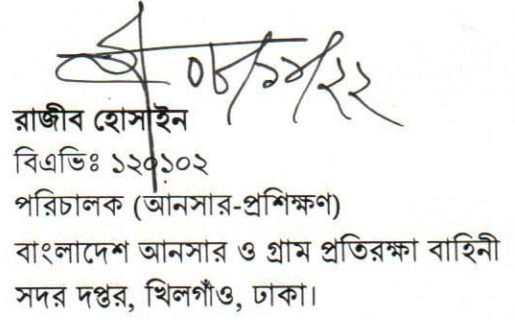 রাজীব হোসাইন
বিএভিঃ ১২০১০২
পরিচালক (আনসার-প্রশিক্ষণ)
বাংলাদেশ আনসার ও গ্রাম প্রতিরক্ষা বাহিনী
সদর দপ্তর, খিলগাঁও, ঢাকা।